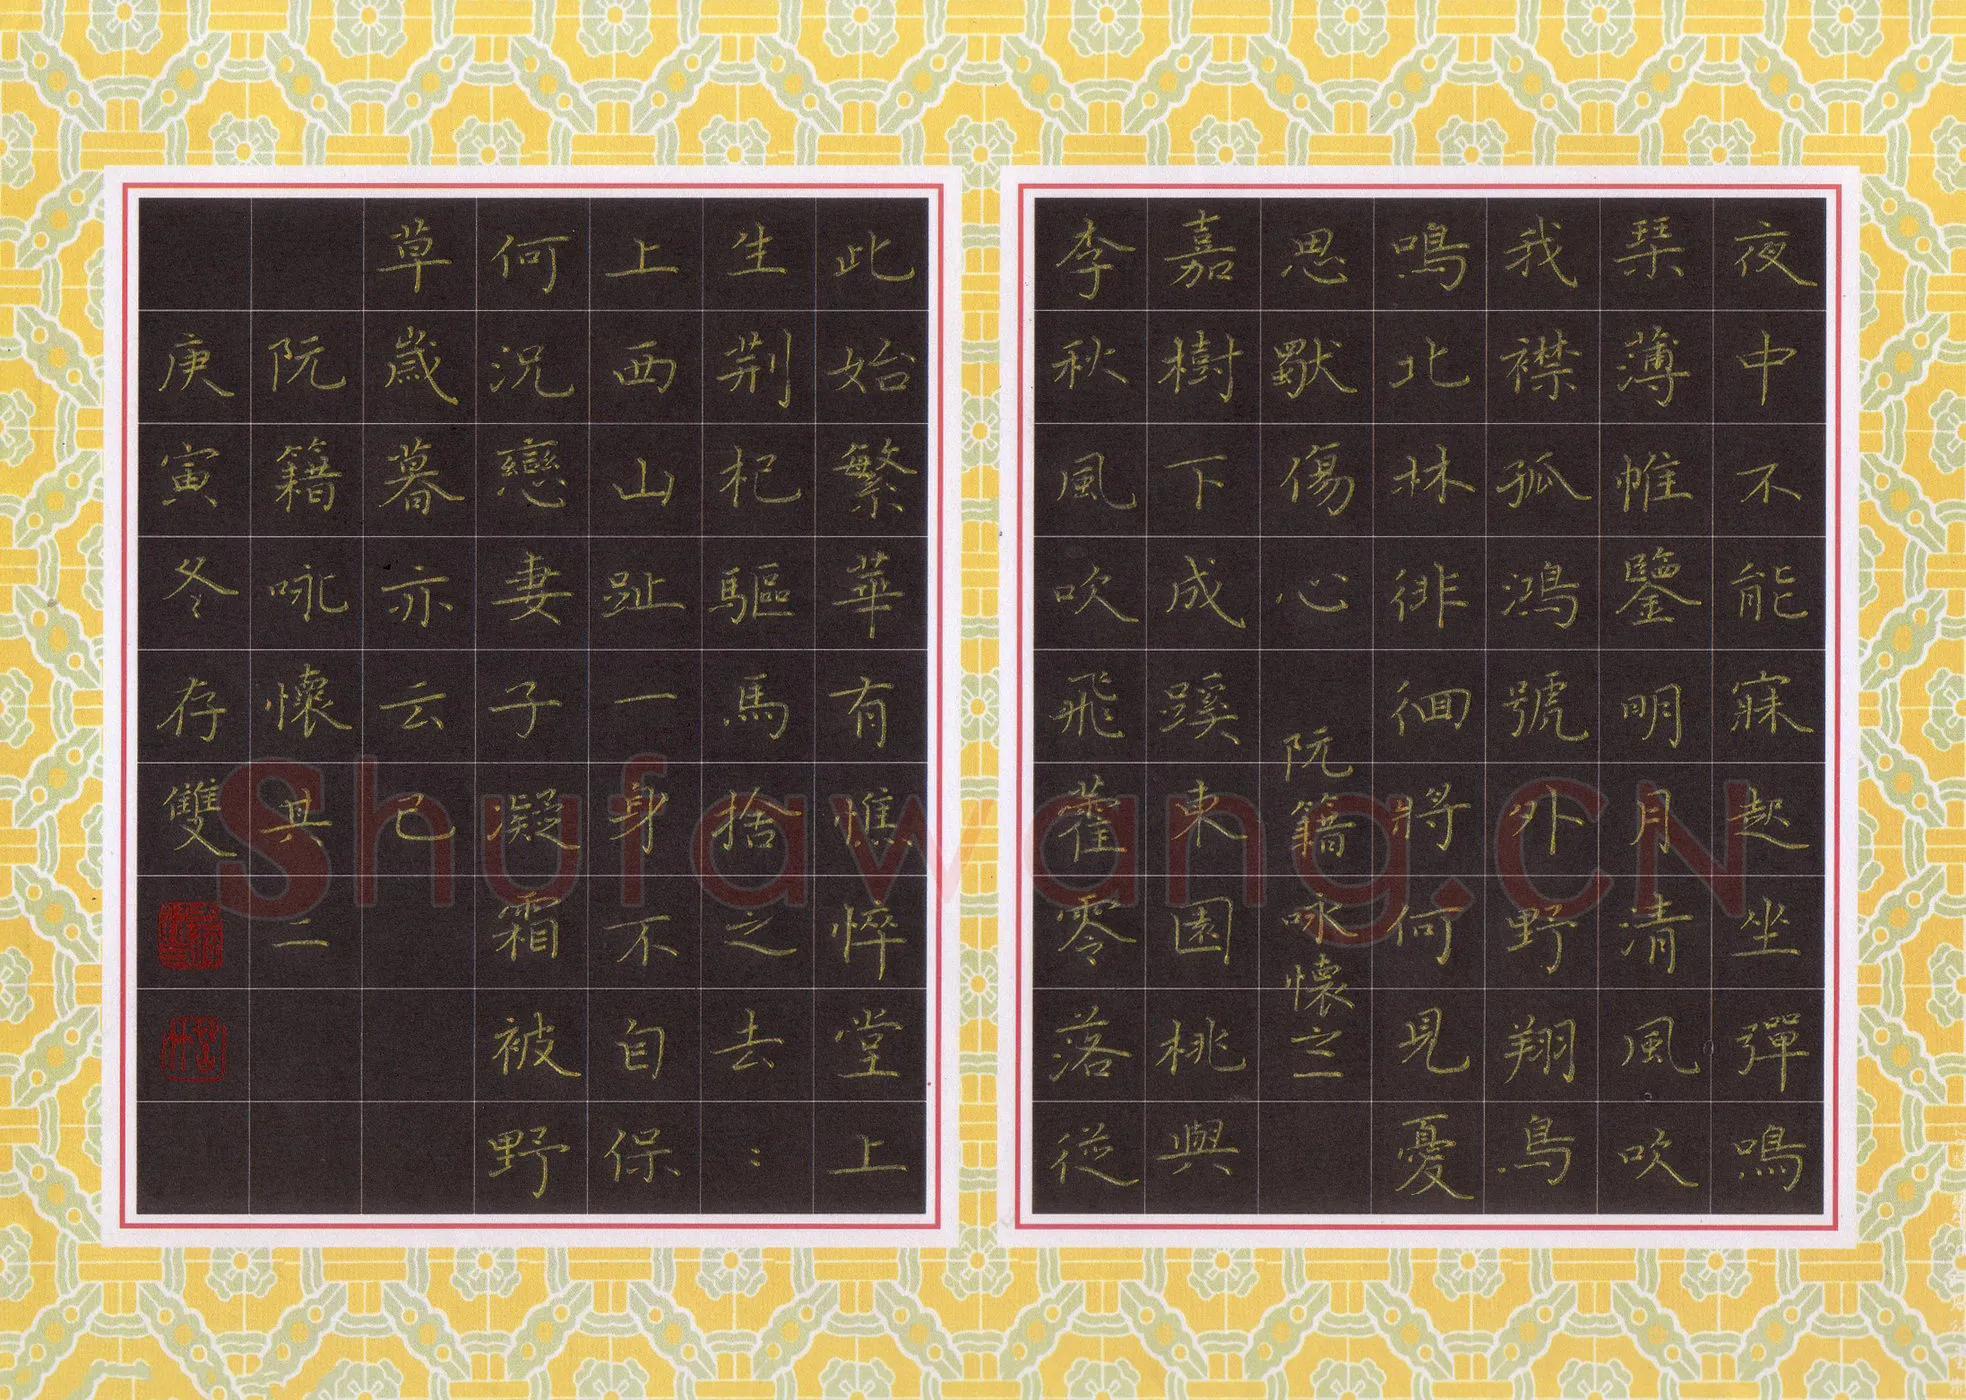 夜中不能寐起坐彈鳴
琹薄帷鑒明月清風吹
我襟孤鴻號外野翔鳥
鳴北林徘徊將何見憂
思獨傷心
阮籍咏懷之一
嘉樹下成蹊東園桃與
李秋風吹飛藿零落從
此始繁華有憔悴堂上
生荆杞驅馬捨之去:
上西山趾一身不自保
何況戀妻子凝霜被野
草歲暮亦云已
阮籍咏懷其二
庚寅冬存雙
Shufawang.CN